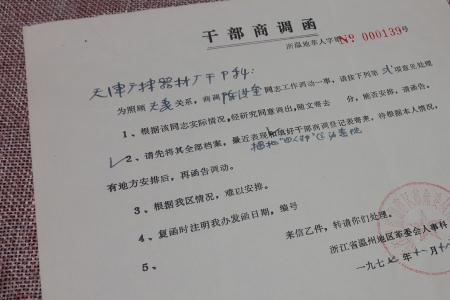 干部商调函
浙温地革人字第 № 000139号
天津广播器材厂干部科：
为照顾夫妻关系，商调 同志工作调动一事，请按下列第 弍 项意见处理
1、根据该同志实际情况，经研究同意调出，随文寄去 分，能否安排，请函告。
✓2、请先将其全部档案，最近表现和填好干部商调登记表寄来，待根据本人情况，
有地方安排后，再函告调动。
3、根据我区情况，难以安排。
4、复函时注明我办发函日期，编号
来信乙件，转请你们处理。
5、
浙江省温州地区革委会人事科
一九七七年十一月十